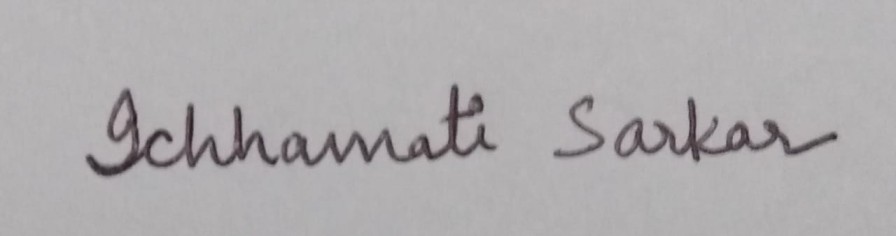 Ichhamati Sarkar